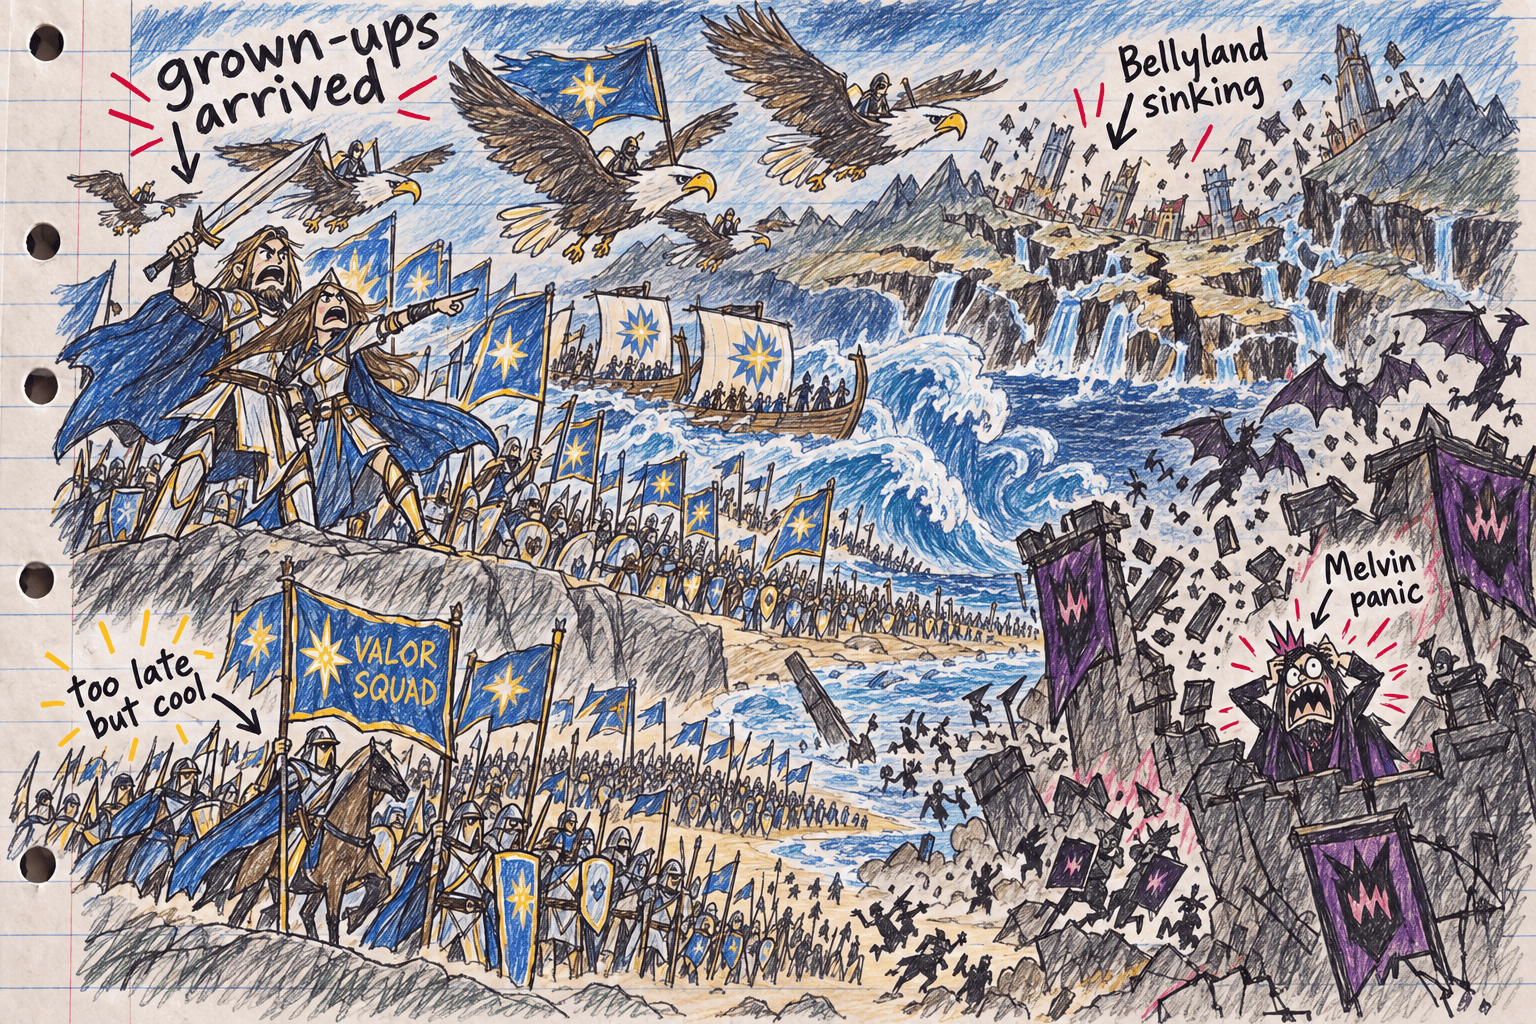 grown-ups
arrived
Bellyland
sinking
Melvin
panic
too late
but cool
VALOR
SQUAD